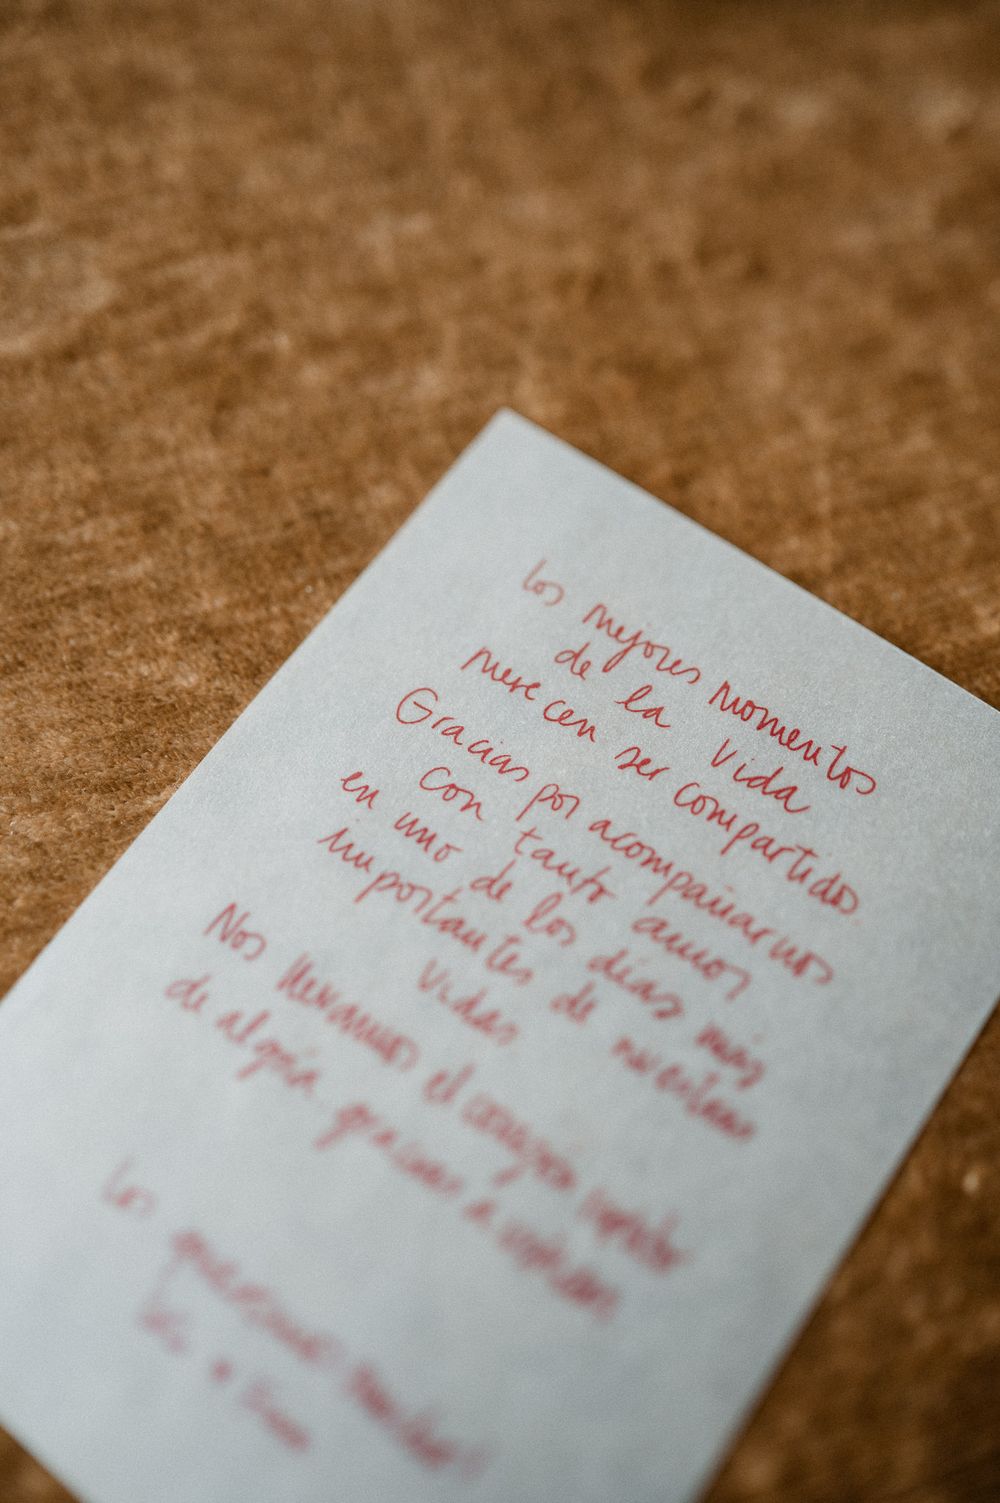 Los mejores momentos
de la vida
merecen ser compartidos.
Gracias por acompañarnos
con tanto amor
en uno de los días más
importantes de nuestras
vidas.
Nos llevamos el corazón repleto
de alegría gracias a ustedes
Los queremos mucho!!